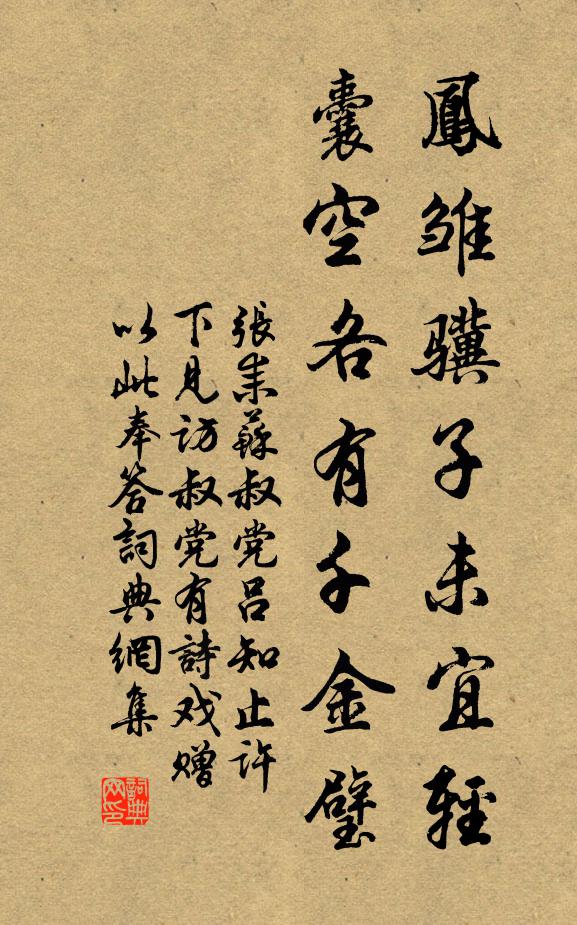 鳳雏骥子未宜輕
囊空各有千金璧
張耒蘇叔党吕知止许
下見訪叔党有詩戏贈
以此奉答詞典網集
詞典網印